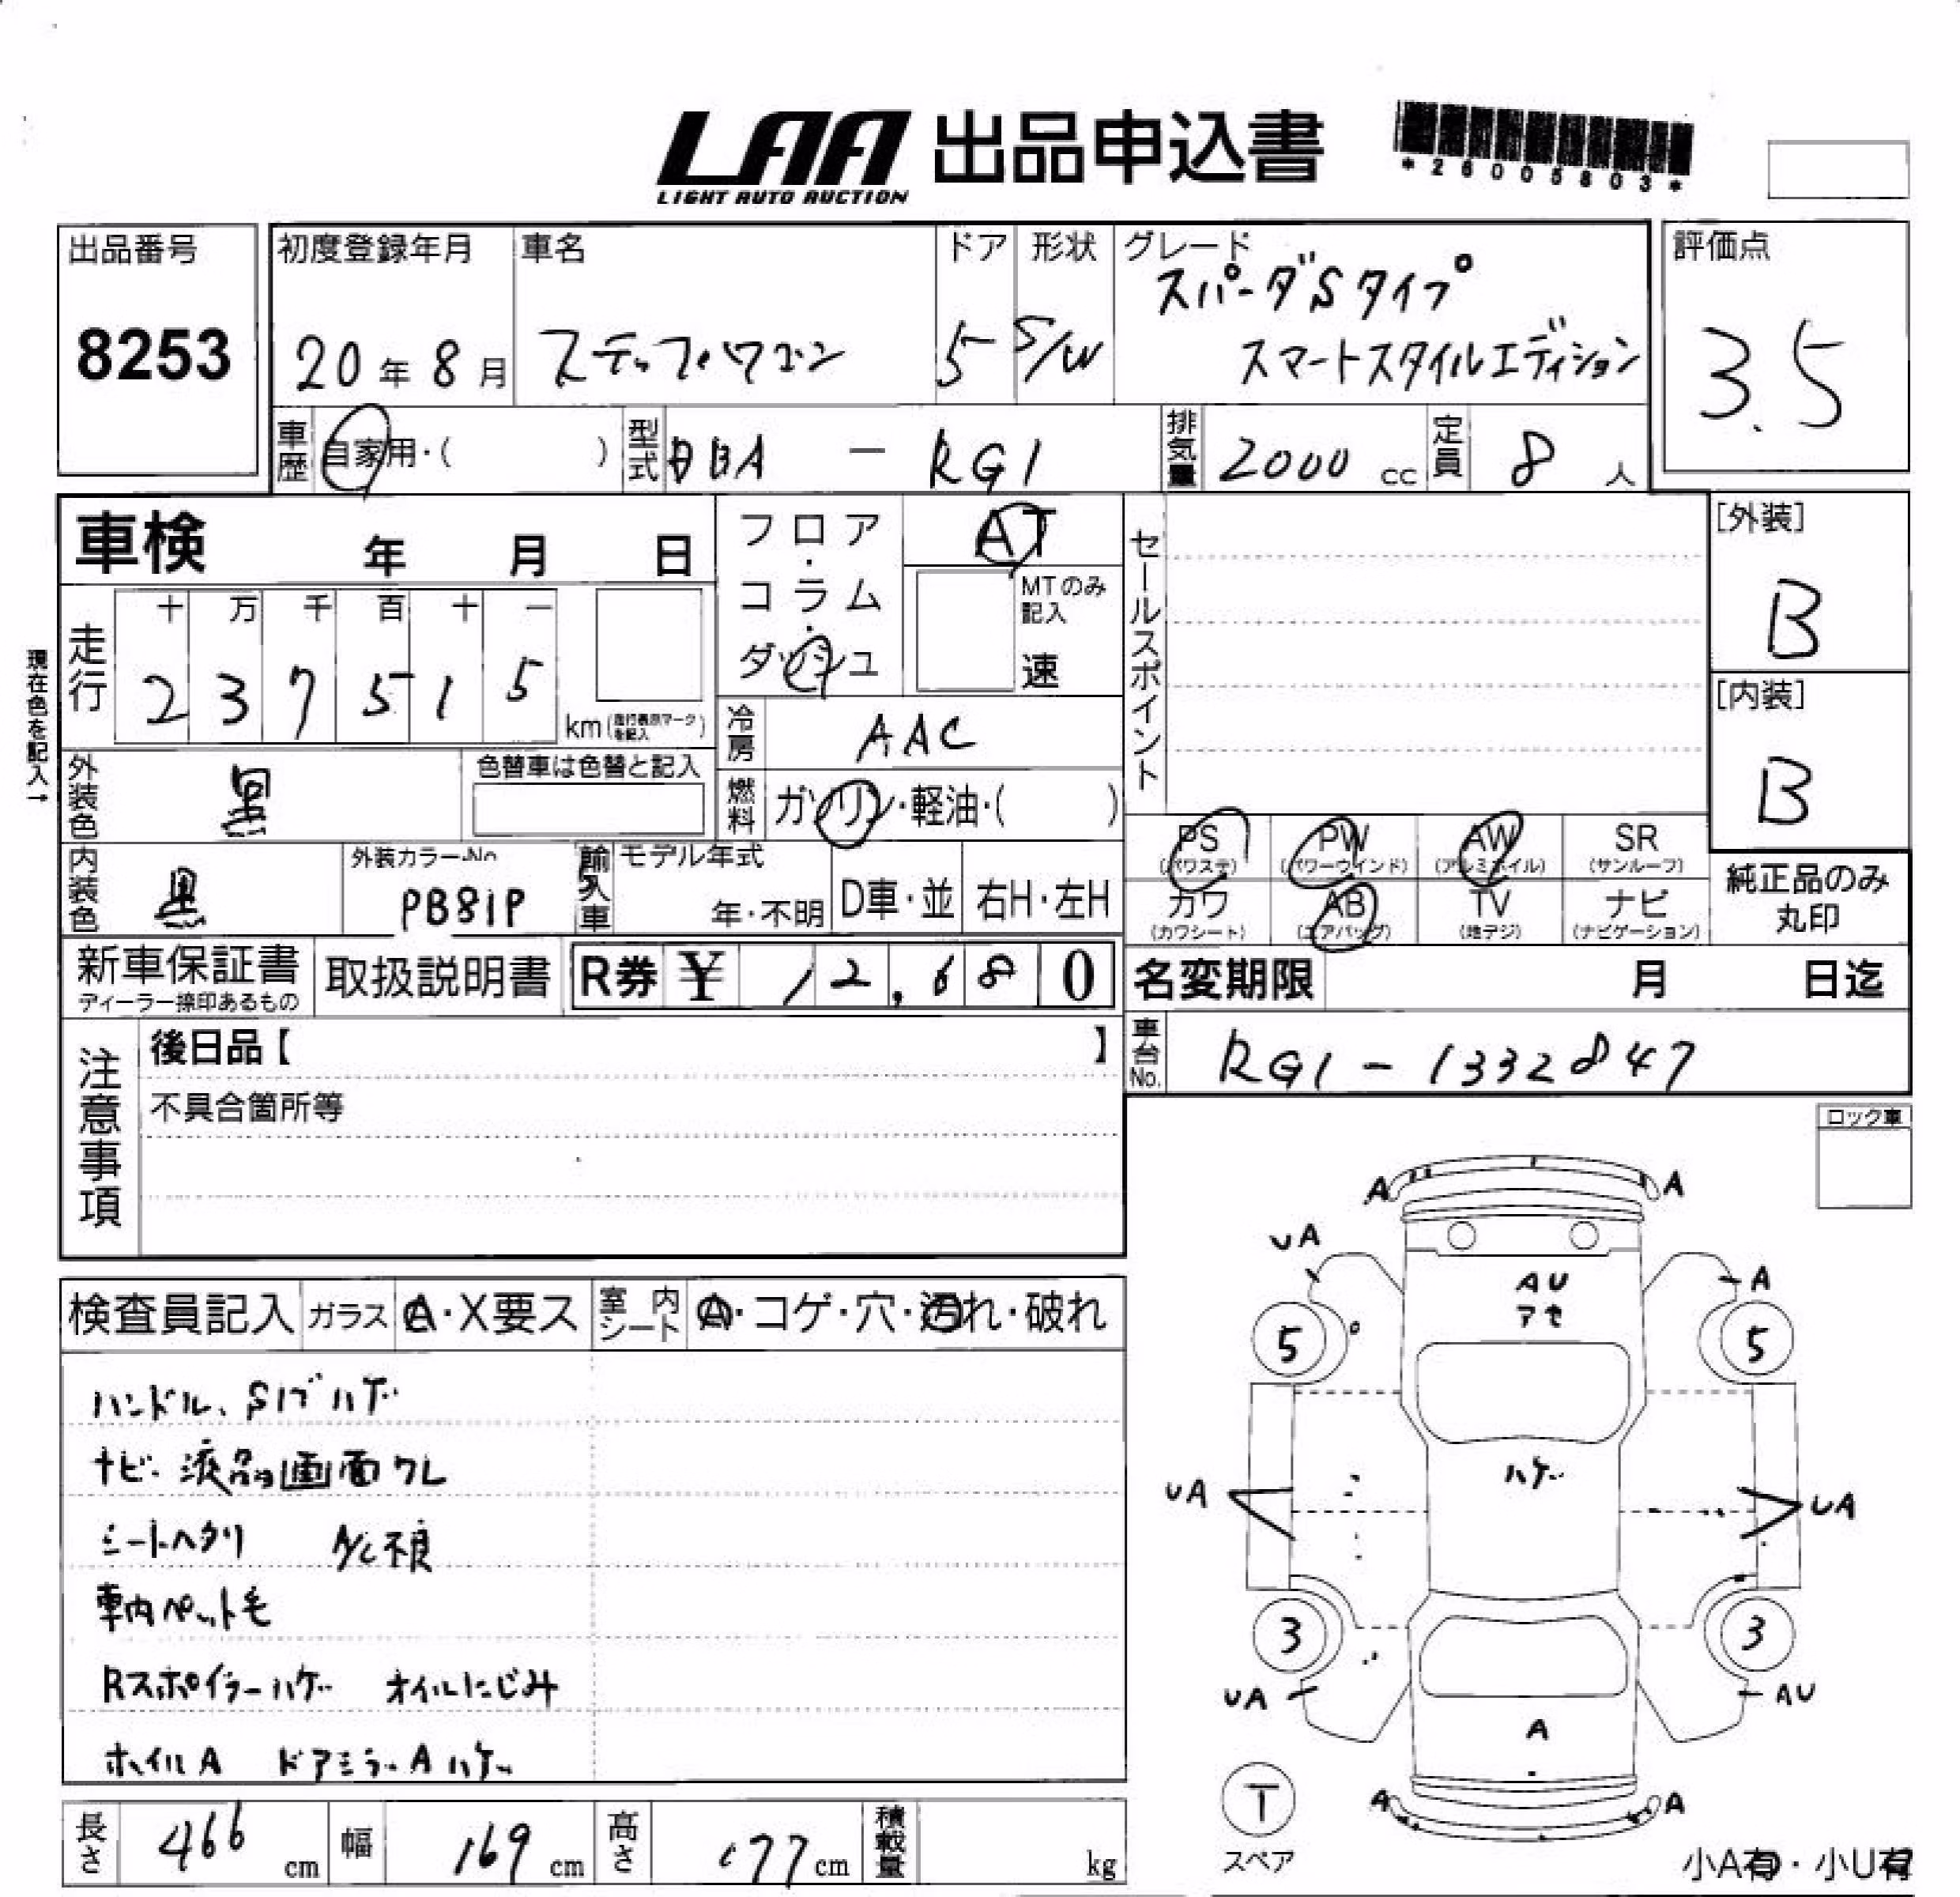 LAA 出品申込書
LIGHT AUTO AUCTION
*26005803*
出品番号
8253
初度登録年月
20年8月
車名
ステップワゴン
ドア
5
形状
S/W
グレード
スパーダSタイプ
スマートスタイルエディション
評価点
3.5
車歴
自家用・( )
型式
DBA - RG1
排気量
2000 cc
定員
8 人
車検 年 月 日
フロア・コラム・ダッシュ
AT
MTのみ記入
速
セールスポイント
[外装]
B
[内装]
B
現在色を記入→
走行
十 万 千 百 十 一
2 3 7 5 1 5
km(走行表示マークを記入)
冷房
AAC
外装色
黒
色替車は色替と記入
燃料
ガソリン・軽油・( )
PS (パワステ)
PW (パワーウインド)
AW (アルミホイル)
SR (サンルーフ)
カワ (カワシート)
AB (エアバッグ)
TV (地デジ)
ナビ (ナビゲーション)
純正品のみ
丸印
内装色
黒
外装カラーNo
PB81P
輸入車
モデル年式
年・不明
D車・並
右H・左H
新車保証書
ディーラー捺印あるもの
取扱説明書
R券 ¥ 12,680
名変期限 月 日迄
車台No.
RG1-1332847
注意事項
後日品【 】
不具合箇所等
ロック車
検査員記入
ガラス
A・X要ス
室内シート
A・コゲ・穴・汚れ・破れ
ハンドル、Sノブハゲ
ナビ液晶画面ワレ
シートヘタリ A/C不良
車内ペット毛
Rスポイラーハゲ オイルにじみ
ホイルA ドアミラーAハゲ
A A
UA A
AU
アセ
5 5
ハゲ
UA UA
3 3
UA AU
A
T
スペア
A A
小A有・小U有
長さ 466 cm
幅 169 cm
高さ 177 cm
積載量 kg